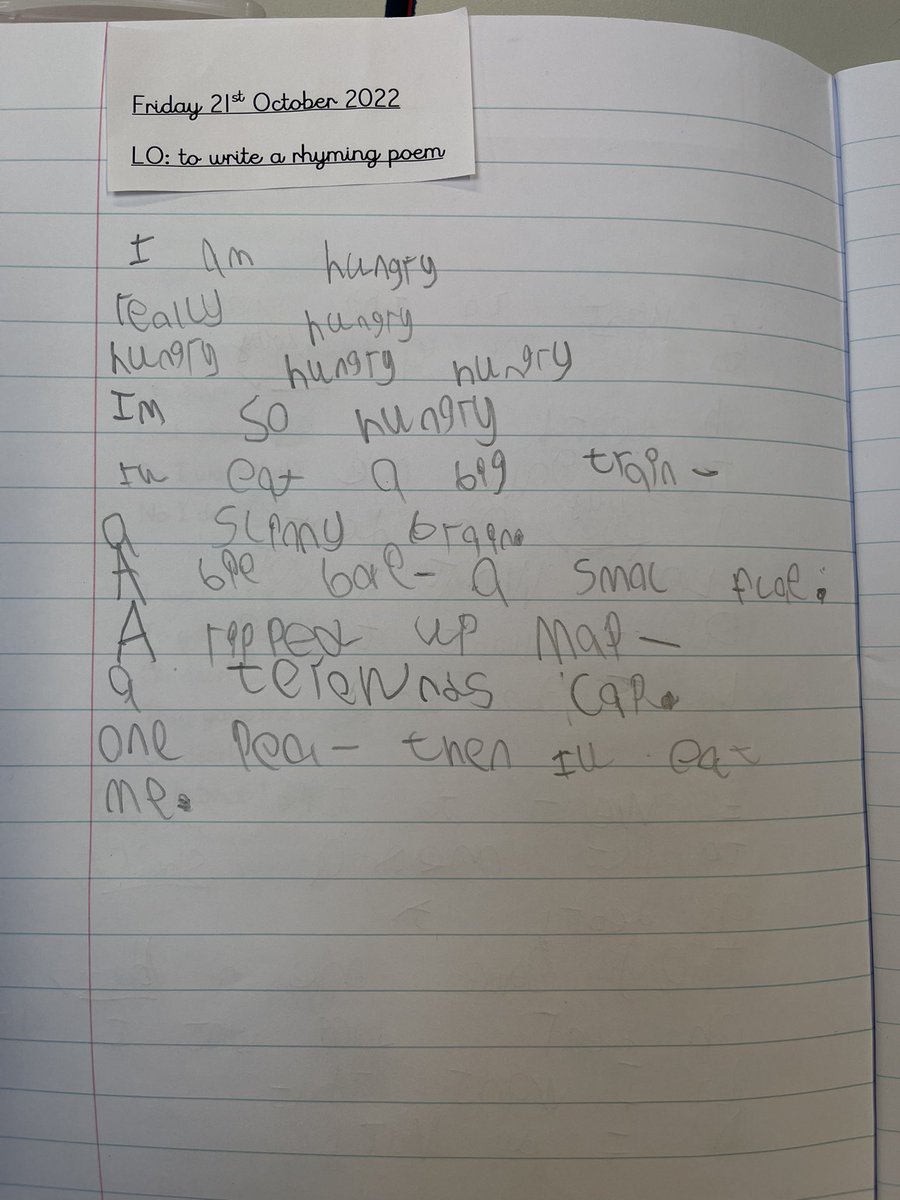 Friday 21st October 2022
LO: to write a rhyming poem
I am hungry
really hungry
hungry hungry hungry
Im so hungry
Ill eat a big train -
a slimmy brain.
A big - a smal
A ripped up map -
a cap.
one pea - then Ill eat
me.